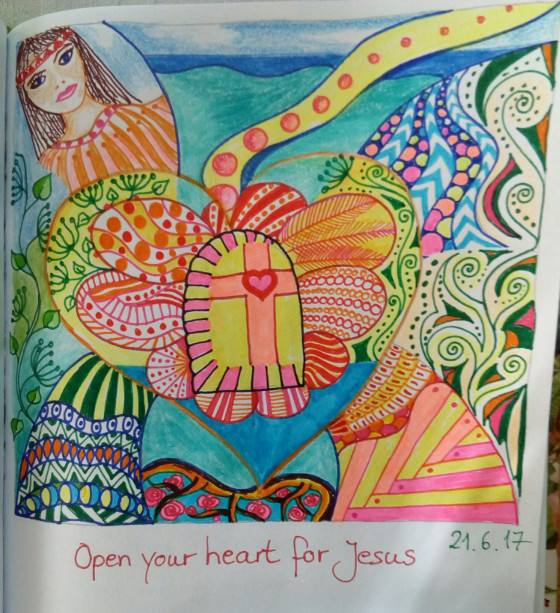 Open your heart for Jesus
21.6.17